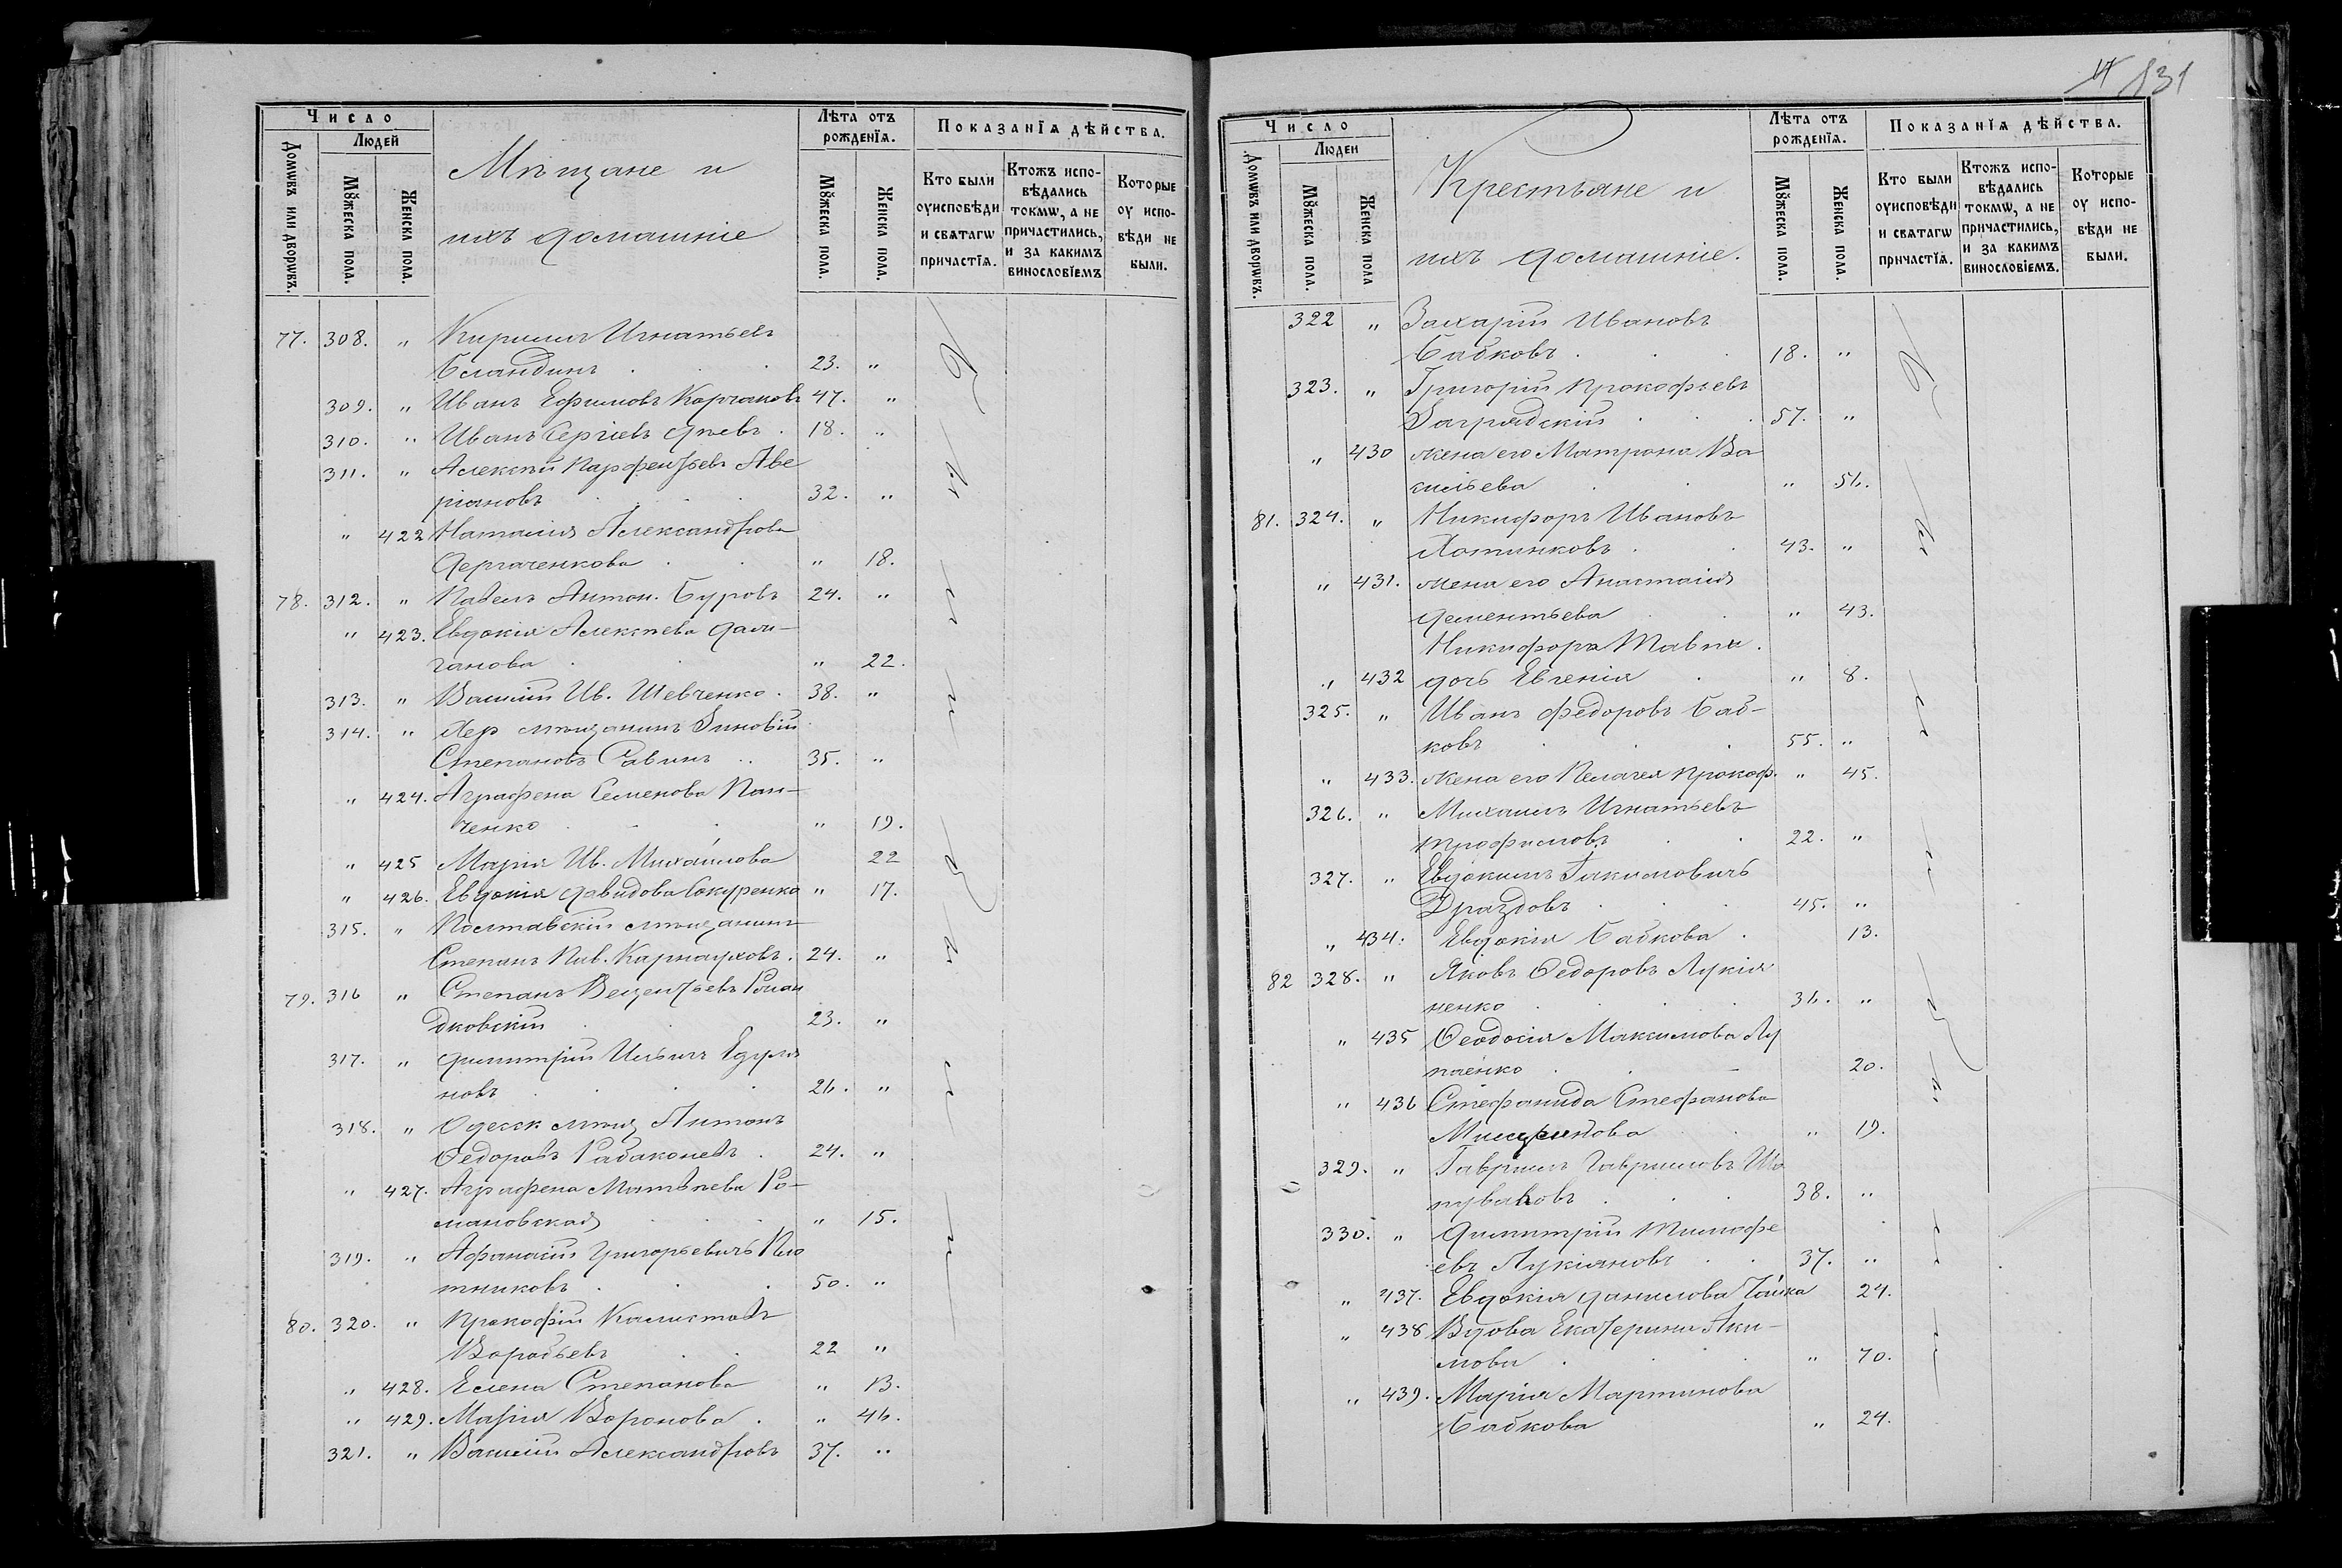 131
Число
Людей
Домѡвъ или дворѡвъ.
Мꙋжеска пола.
Женска пола.
Мѣщане и
ихъ домашніе
Лѣта отъ рожденїѧ.
Мꙋжеска пола.
Женска пола.
Показанїѧ дѣйства.
Кто были оуисповѣди и свѧтагѡ причастїѧ.
Ктожъ исповѣдались токмѡ, а не причастились, и за какимъ винословїемъ
Которые оу исповѣди не были.
77. 308. " Кирилъ Игнатьевъ
Бландинъ . . 23. "
309. " Иванъ Ефимовъ Корчаковъ 47. "
310. " Иванъ Сергіевъ 18. "
311. " Алексѣй Парфентьевъ Аве
ріановъ . . . 32. "
" 422 Наталія Александрова
Дергаченкова . . " 18.
78. 312. " Павелъ Антон. Буровъ 24. "
" 423. Евдокія Алексѣева Дали-
ганова . . " 22.
313. " Василій Ив. Шевченко . 38. "
314. " Хер мѣщанинъ Зиновій
Степановъ Савинъ .. 35. "
" 424. Аграфена Семенова Пан-
ченко . . . " 19.
" 425 Марія Ив. Михайлова 22
" 426. Евдокія Давидова Сокуренко " 17.
315. " Полтавскій мѣщанинъ
Степанъ Пав. Карнауховъ . 24. "
79. 316 " Степанъ
дковскій . . 23. "
317. " Димитрій Ильичъ
новъ . . . 26. "
318. " Одесск мѣщ Антонъ
Ѳедоровъ . 24. "
" 427. Аграфена Матвѣева Ро-
мановская . " 15.
319. " Афанасій Григорьевичъ Пло
тниковъ . . 50. "
80. 320. " Прокофій Калистовъ
Воробьевъ . . 22 "
" 428. Елена Степанова " 13.
" 429. Марія Воронова . " 46.
321. " Василій Александровъ 37. "
Число
Людей
Домѡвъ или дворѡвъ.
Мꙋжеска пола.
Женска пола
Крестьяне и
ихъ домашніе.
Лѣта отъ рожденїѧ.
Мꙋжеска пола.
Женска пола.
Показанїѧ дѣйства.
Кто были оуисповѣди и свѧтагѡ причастїѧ.
Ктожъ исповѣдались токмѡ, а не причастились, и за какимъ винословїемъ.
Которые оу исповѣди не были.
322 " Захарій Ивановъ
Бабковъ . . . 18. "
323. " Григорій Прокофьевъ
Заградскій . . . 57. "
" 430 жена его Матрона Ва
сильева . . " 56.
81. 324. " Никифоръ Ивановъ
Хотинковъ . . 43. "
" 431. жена его Анастасія
Дементьева . " 43.
Никифора
" 432 дочь Евгенія . " 8.
325. " Иванъ Федоровъ Баб-
ковъ . . . 55. "
" 433. жена его Пелагея Прокоф. " 45.
326. " Михаилъ Игнатьевъ
Трофимовъ . . 22. "
327. " Евдокимъ Іакимовичъ
Драздовъ . . . 45. "
" 434. Евдокія Бабкова . 13.
82 328. " Яковъ Ѳедоровъ Лукія
ненко . . . 36. "
" 435 Ѳеодосія Максимова Лу
паенко . . 20.
" 436 Стефанида Стефанова
. " 19.
329. " Гавріилъ Гавриловъ Шо
пуваловъ . . . 38. "
330. " Димитрій Тимофе
евъ Лукіановъ . . 37. "
" 437. Евдокія Данилова Чайка 24.
" 438 Вдова Екатерина Аки-
мова . . . " 70.
" 439. Марія Мартинова
Бабкова " 24.